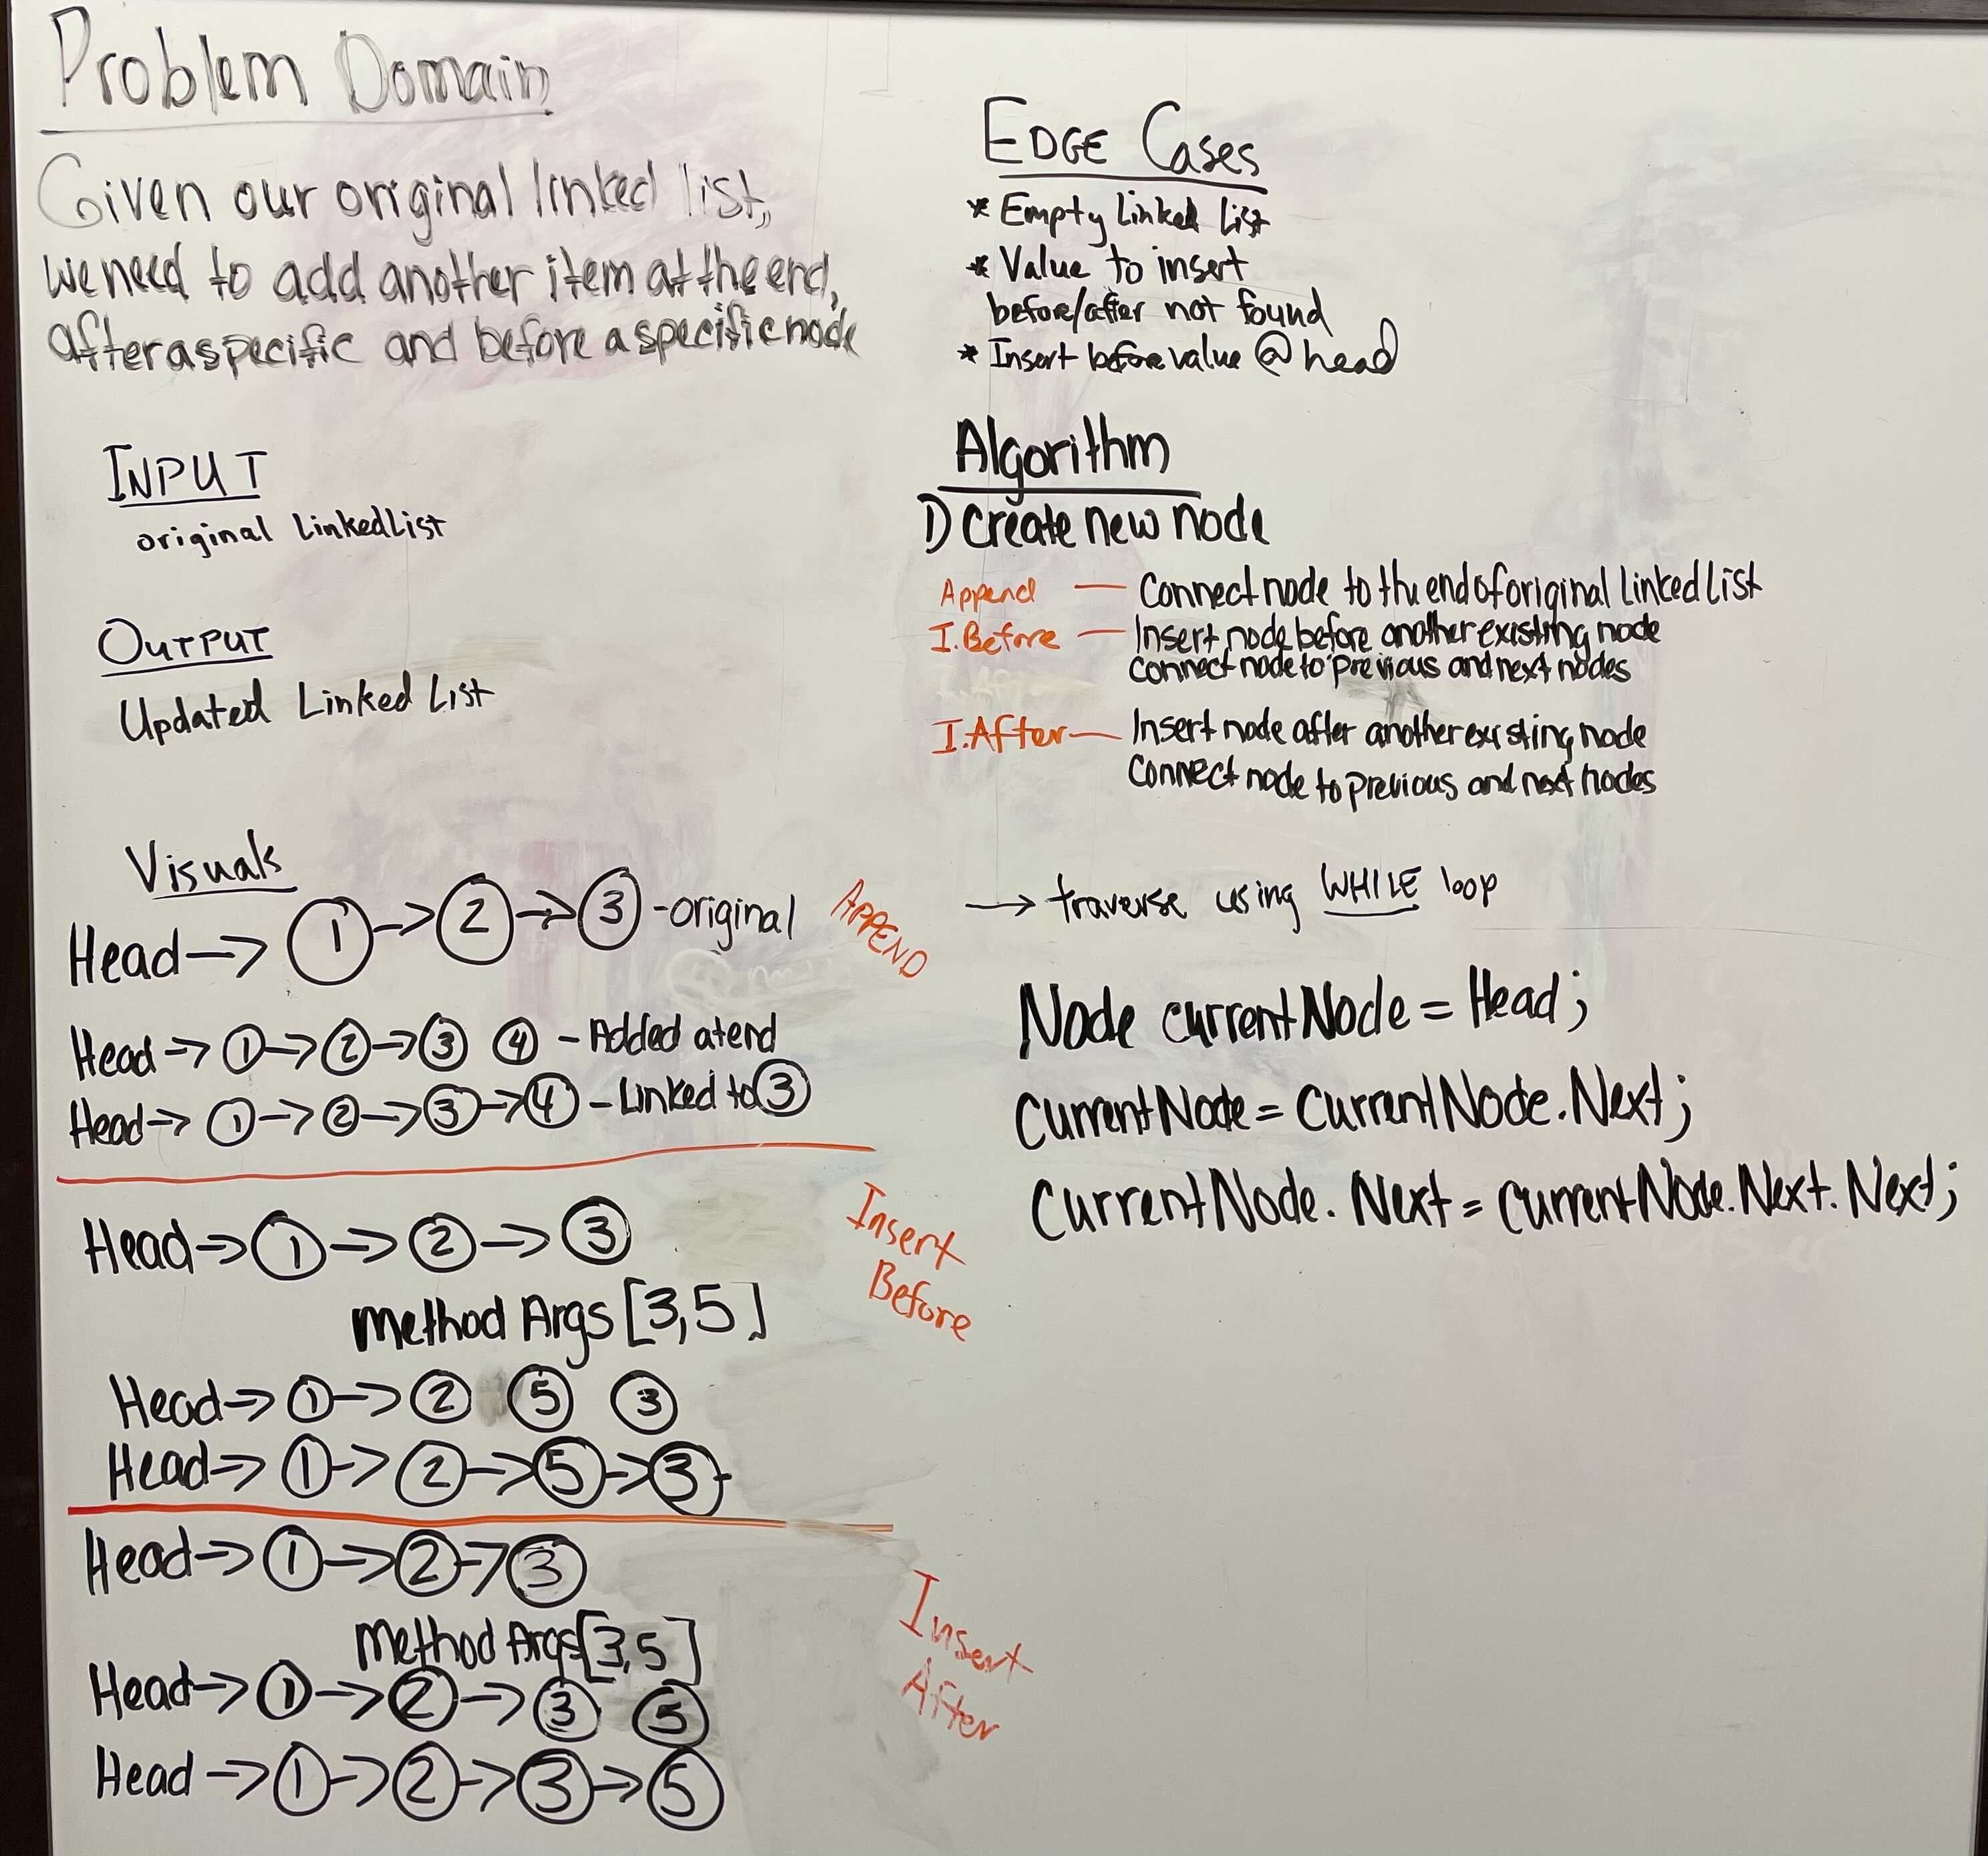 Problem Domain
Given our original linked list,
we need to add another item at the end,
after a specific and before a specific node
INPUT
original LinkedList
OUTPUT
Updated Linked List
Visuals
Head → 1 → 2 → 3 - original
APPEND
Head → 1 → 2 → 3 4 - Added at end
Head → 1 → 2 → 3 → 4 - Linked to 3
Head → 1 → 2 → 3
Insert
Before
Method Args [3,5]
Head → 1 → 2 5 3
Head → 1 → 2 → 5 → 3
Head → 1 → 2 → 3
Insert
After
Method Args [3,5]
Head → 1 → 2 → 3 5
Head → 1 → 2 → 3 → 5
EDGE Cases
* Empty Linked List
* Value to insert
before/after not found
* Insert before value @ head
Algorithm
1) Create new node
Append — Connect node to the end of original Linked List
I.Before — Insert node before another existing node
connect node to previous and next nodes
I.After — Insert node after another existing node
Connect node to previous and next nodes
→ traverse using WHILE loop
Node currentNode = Head;
CurrentNode = CurrentNode.Next;
CurrentNode.Next = CurrentNode.Next.Next;